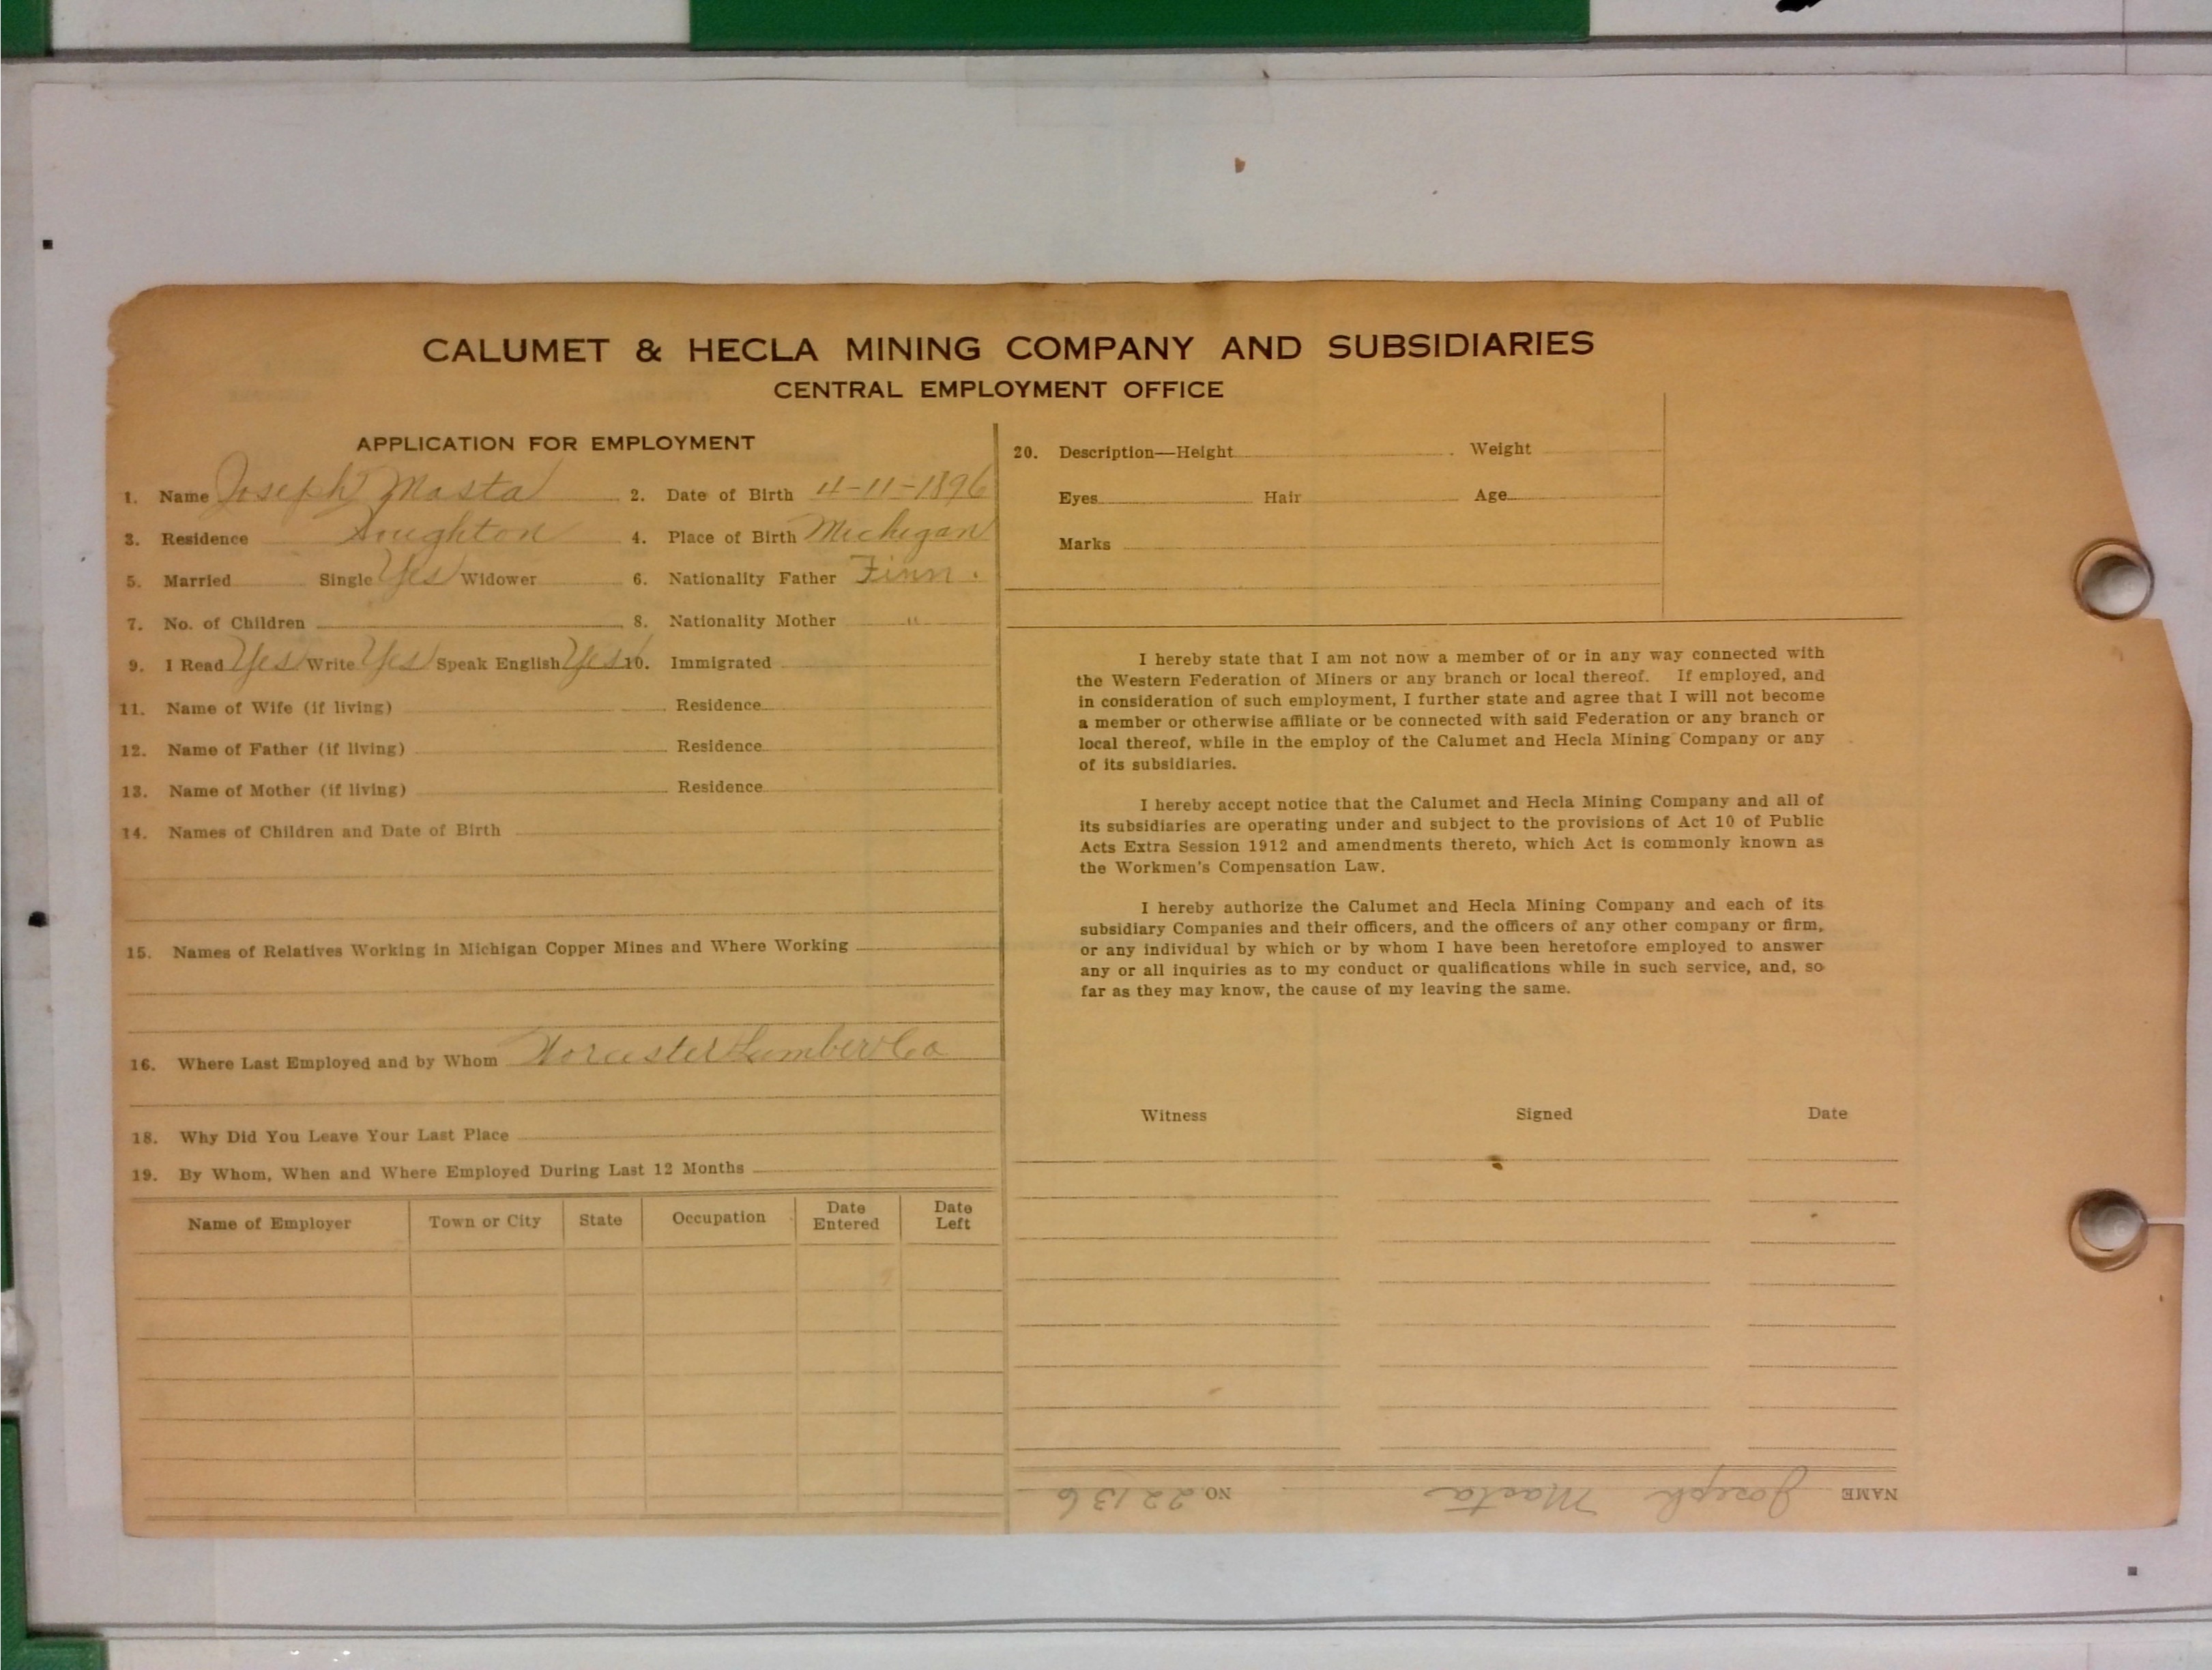 CALUMET & HECLA MINING COMPANY AND SUBSIDIARIES
CENTRAL EMPLOYMENT OFFICE
APPLICATION FOR EMPLOYMENT
1. Name Joseph Masta 2. Date of Birth 4-11-1896
3. Residence Houghton 4. Place of Birth Michigan
5. Married Single Yes Widower 6. Nationality Father Finn.
7. No. of Children 8. Nationality Mother "
9. I Read Yes Write Yes Speak English Yes 10. Immigrated
11. Name of Wife (if living) Residence
12. Name of Father (if living) Residence
13. Name of Mother (if living) Residence
14. Names of Children and Date of Birth
15. Names of Relatives Working in Michigan Copper Mines and Where Working
16. Where Last Employed and by Whom Worcester Lumber Co
18. Why Did You Leave Your Last Place
19. By Whom, When and Where Employed During Last 12 Months
Name of Employer Town or City State Occupation Date Entered Date Left
20. Description—Height Weight
Eyes Hair Age
Marks
I hereby state that I am not now a member of or in any way connected with
the Western Federation of Miners or any branch or local thereof. If employed, and
in consideration of such employment, I further state and agree that I will not become
a member or otherwise affiliate or be connected with said Federation or any branch or
local thereof, while in the employ of the Calumet and Hecla Mining Company or any
of its subsidiaries.
I hereby accept notice that the Calumet and Hecla Mining Company and all of
its subsidiaries are operating under and subject to the provisions of Act 10 of Public
Acts Extra Session 1912 and amendments thereto, which Act is commonly known as
the Workmen's Compensation Law.
I hereby authorize the Calumet and Hecla Mining Company and each of its
subsidiary Companies and their officers, and the officers of any other company or firm,
or any individual by which or by whom I have been heretofore employed to answer
any or all inquiries as to my conduct or qualifications while in such service, and, so
far as they may know, the cause of my leaving the same.
Witness Signed Date
NAME Joseph Masta NO 22136